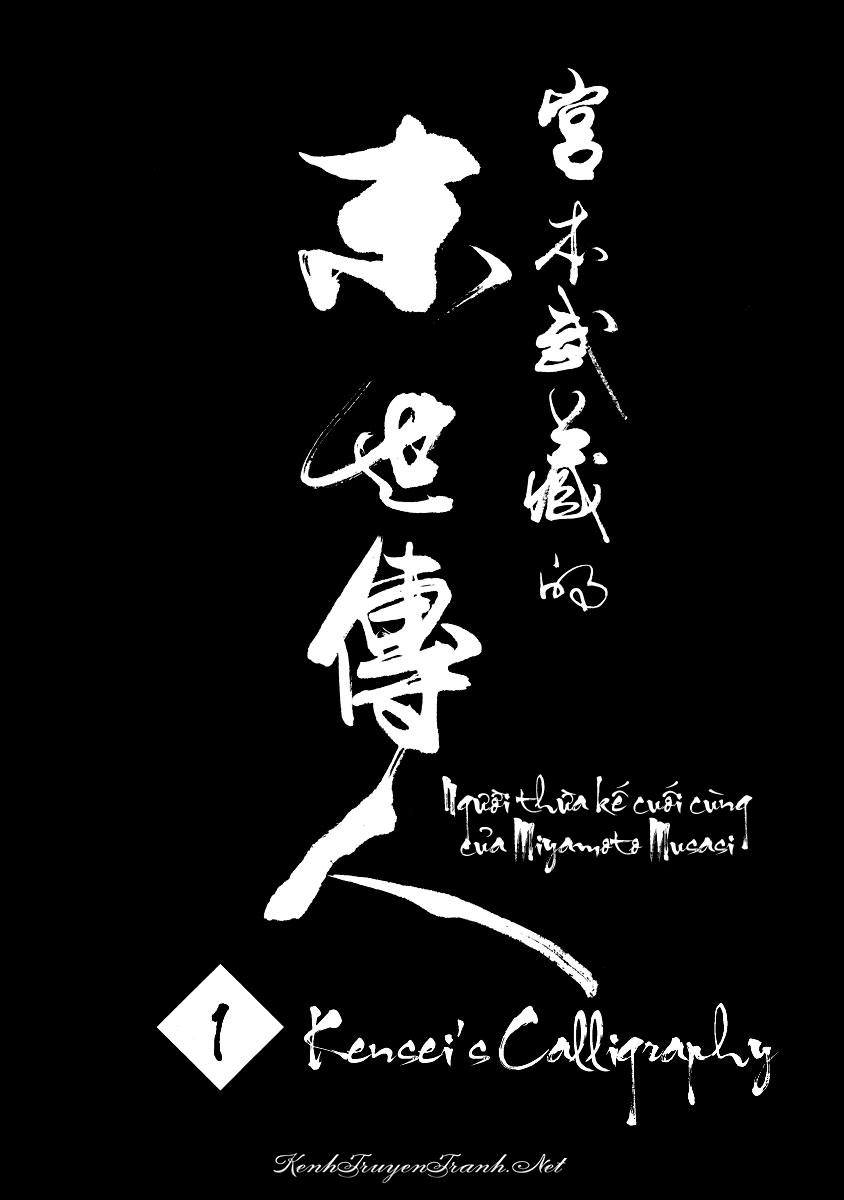 宮本武藏的
末世傳人
Người thừa kế cuối cùng
của Miyamoto Musasi
1
Kensei's Calligraphy
KenhTruyenTranh.Net